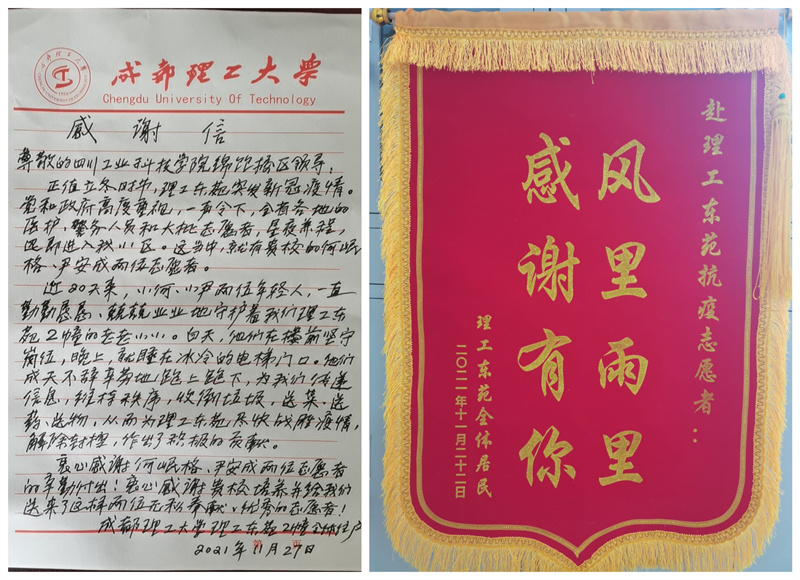 成都理工大学
Chengdu University Of Technology
感谢信
尊敬的四川工业科技学院绵阳校区领导:
正值立冬时节,理工东苑突发新冠疫情。
党和政府高度重视,一声令下,全省各地的
医护、警务人员和大批志愿者,星夜兼程,
迅即进入我小区。这当中,就有贵校的何岷
格、尹安成两位志愿者。
近20天来,小何、小尹两位年轻人,一直
勤勤恳恳、兢兢业业地守护着我们理工东
苑2幢的老老小小。白天,他们在楼前坚守
岗位,晚上,就睡在冰冷的电梯门口。他们
成天不辞辛劳地跑上跑下,为我们传递
信息,维持秩序,收倒垃圾,送菜、送
药、送物,从而为理工东苑尽快战胜疫情,
解除封控,作出了积极的贡献。
衷心感谢何岷格、尹安成两位志愿者
的辛勤付出!衷心感谢贵校培养并给我们
送来了这样两位无私奉献、优秀的志愿者!
成都理工大学理工东苑2幢全体住户
2021年11月27日
赴理工东苑抗疫志愿者:
风里雨里
感谢有你
理工东苑全体居民
二〇二一年十一月二十二日